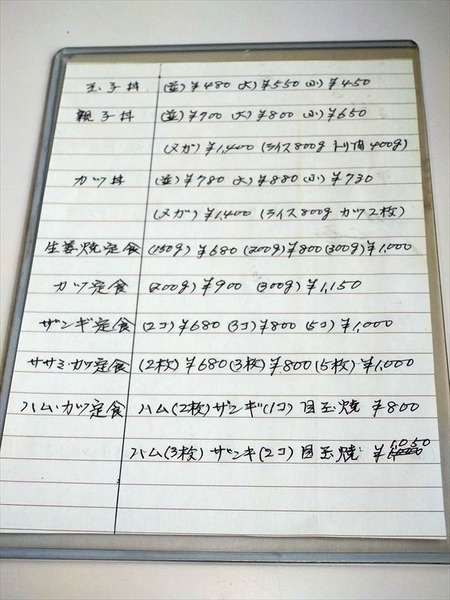 玉子丼 (並)¥480 (大)¥550 (小)¥450
親子丼 (並)¥700 (大)¥800 (小)¥650
(メガ)¥1,400 (ライス800g トリ肉400g)
カツ丼 (並)¥780 (大)¥880 (小)¥730
(メガ)¥1,400 (ライス800g カツ2枚)
生姜焼定食 (150g)¥680 (200g)¥800 (300g)¥1,000
カツ定食 (200g)¥900 (300g)¥1,150
ザンギ定食 (2コ)¥680 (3コ)¥800 (5コ)¥1,000
ササミ・カツ定食 (2枚)¥680 (3枚)¥800 (5枚)¥1,000
ハム・カツ定食 ハム(2枚) ザンギ(1コ) 目玉焼 ¥800
ハム(3枚) ザンギ(2コ) 目玉焼 ¥1,050